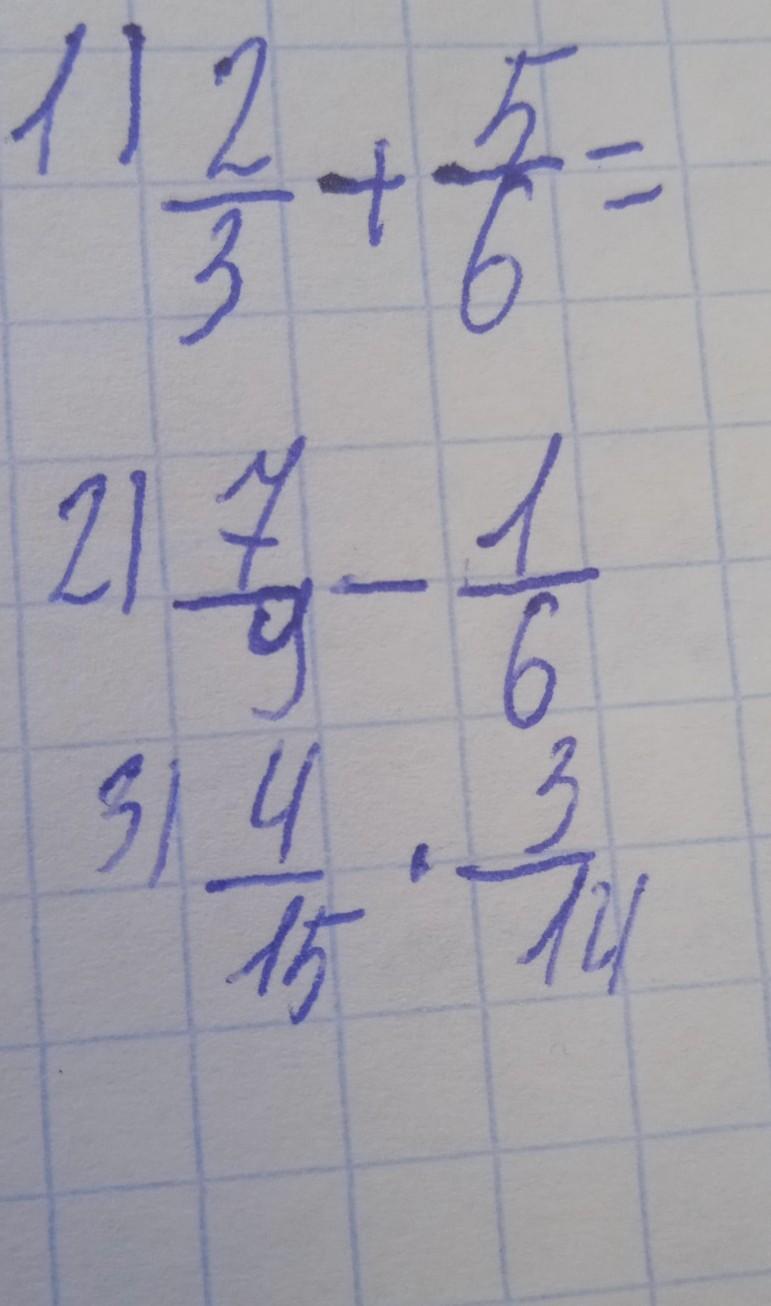 1) 2/3 + 5/6 =
2) 7/9 - 1/6
3) 4/15 · 3/14